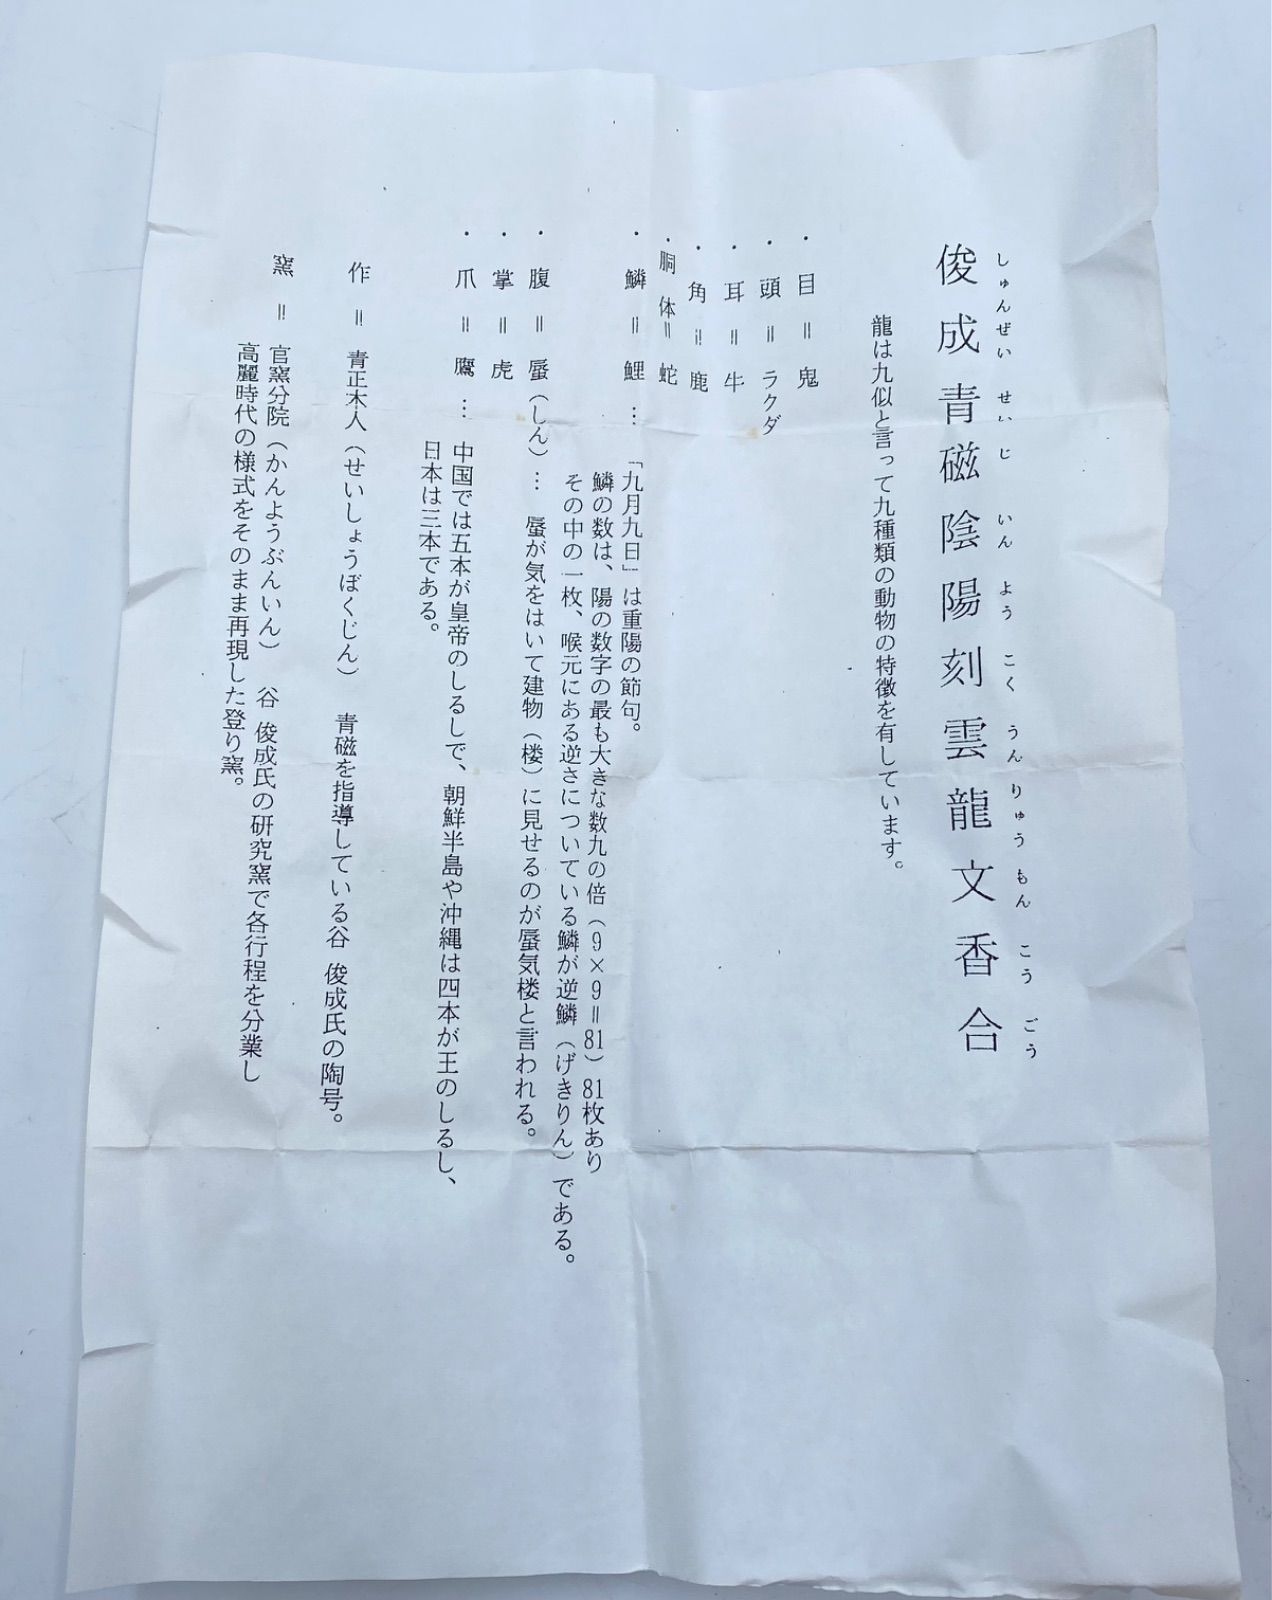 俊成青磁陰陽刻雲龍文香合
しゅんぜい せいじ いんようこくうんりゅうもんこうごう
龍は九似と言って九種類の動物の特徴を有しています。
・目＝鬼
・頭＝ラクダ
・耳＝牛
・角＝鹿
・胴体＝蛇
・鱗＝鯉…「九月九日」は重陽の節句。
鱗の数は、陽の数字の最も大きな数九の倍（9×9＝81）81枚あり
その中の一枚、喉元にある逆さについている鱗が逆鱗（げきりん）である。
・腹＝蜃（しん）…蜃が気をはいて建物（楼）に見せるのが蜃気楼と言われる。
・掌＝虎
・爪＝鷹…中国では五本が皇帝のしるしで、朝鮮半島や沖縄は四本が王のしるし、
日本は三本である。
作＝青正木人（せいしょうぼくじん） 青磁を指導している谷 俊成氏の陶号。
窯＝官窯分院（かんようぶんいん） 谷 俊成氏の研究窯で各行程を分業し
高麗時代の様式をそのまま再現した登り窯。